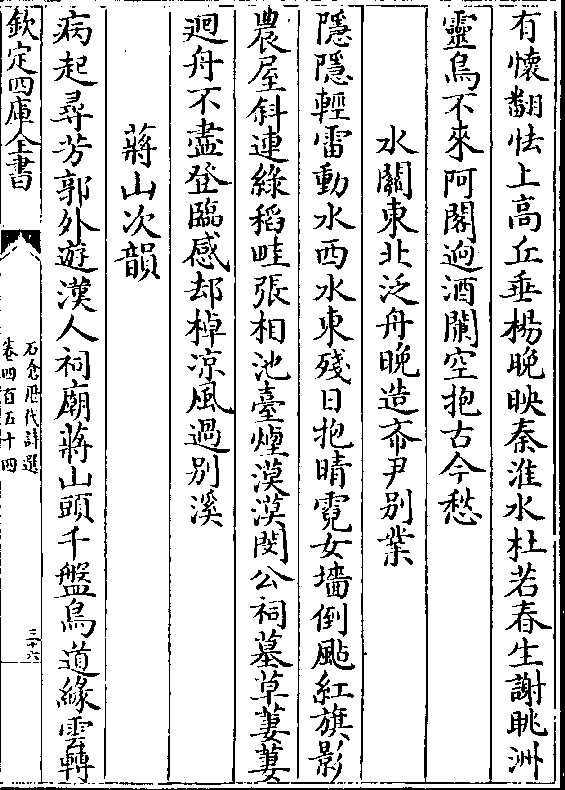 有懷翻怯上高丘垂楊晚映秦淮水杜若春生謝眺洲
靈烏不來阿閣逈酒闌空抱古今愁
水關東北泛舟晚造齋尹别業
隱隱輕雷動水西水東殘日抱晴霓女墻倒颭紅旗影
農屋斜連綠稻畦張相池臺煙漠漠閔公祠墓草萋萋
迴舟不盡登臨感却棹凉風過别溪
蔣山次韻
病起尋芳郭外遊漢人祠廟蔣山頭千盤鳥道緣雲轉
欽定四庫全書
石倉歷代詩選
卷四百五十四
三十六